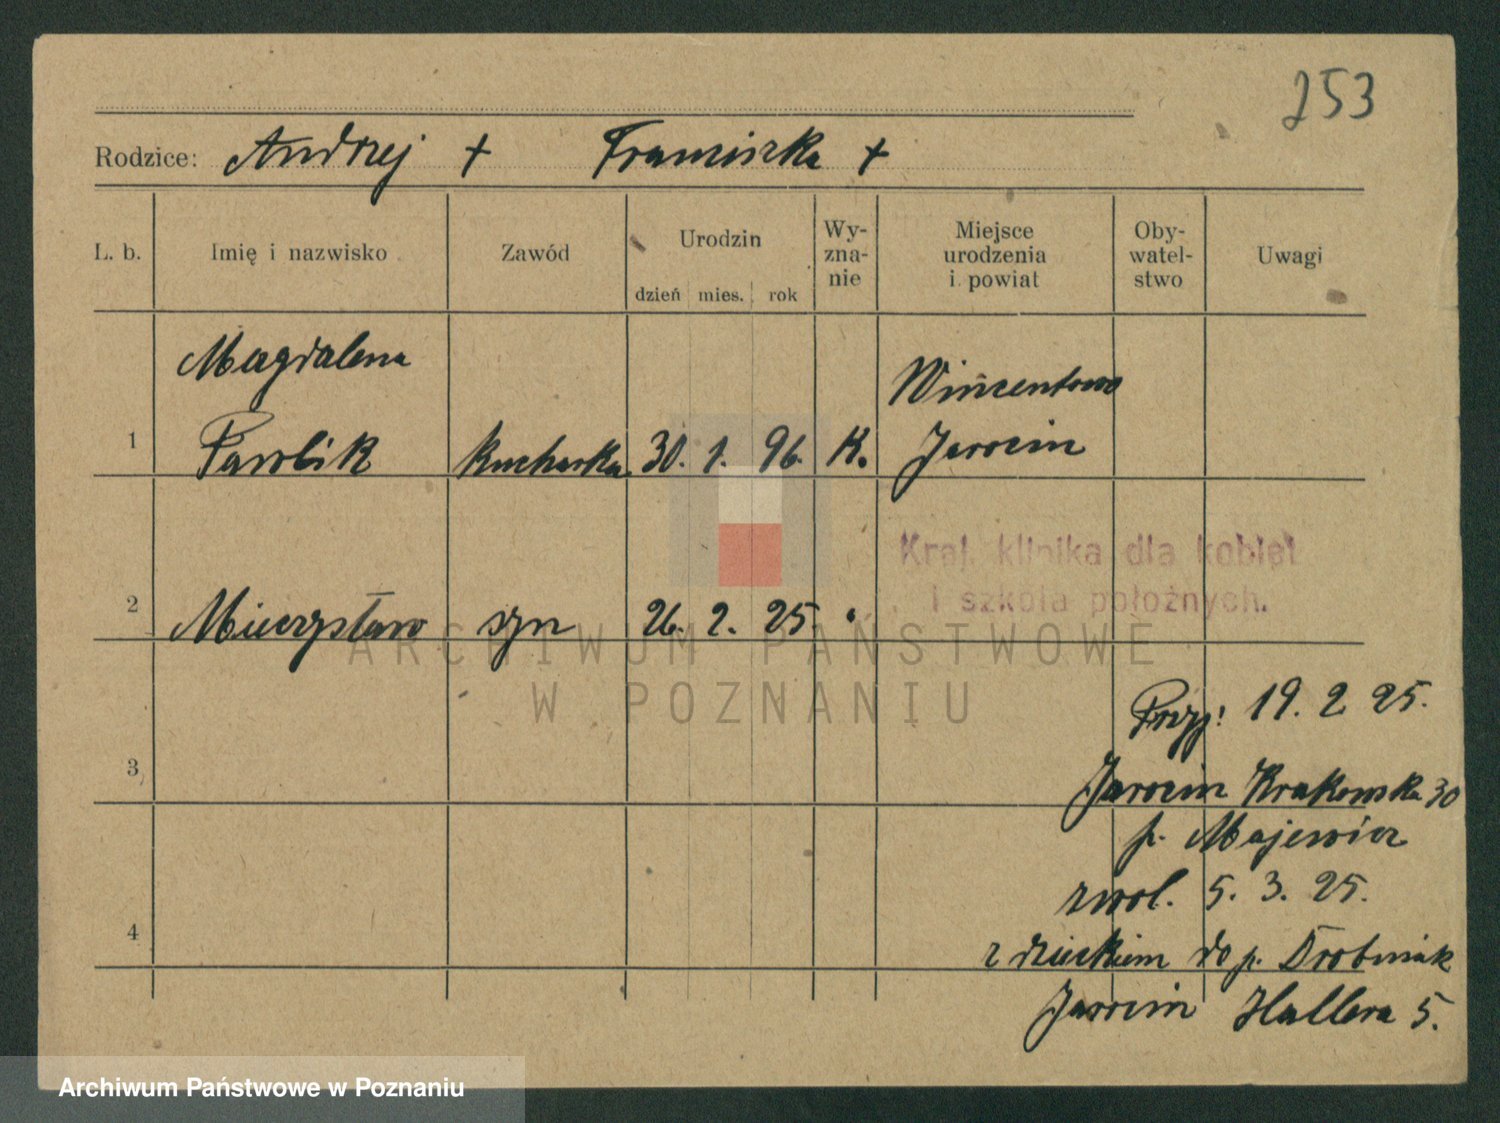 253
Rodzice: Andrzej + Franciszka +
L. b. Imię i nazwisko Zawód Urodzin dzień mies. rok Wy-zna-nie Miejsce urodzenia i powiat Oby-watel-stwo Uwagi
Magdalena Wincentowo
1 Pawlik Kucharka 30. 1. 96. K. Jarocin
Kraj. klinika dla kobiet
i szkoła położnych.
2 Mieczysław syn 26. 2. 25. "
ARCHIWUM PAŃSTWOWE
W POZNANIU
Przyj: 19. 2 25.
3
Jarocin Krakowska 30
p. Majewicz
zwol. 5. 3. 25.
4
z dzieckiem do p. Drobniak
Jarocin Hallera 5.
Archiwum Państwowe w Poznaniu